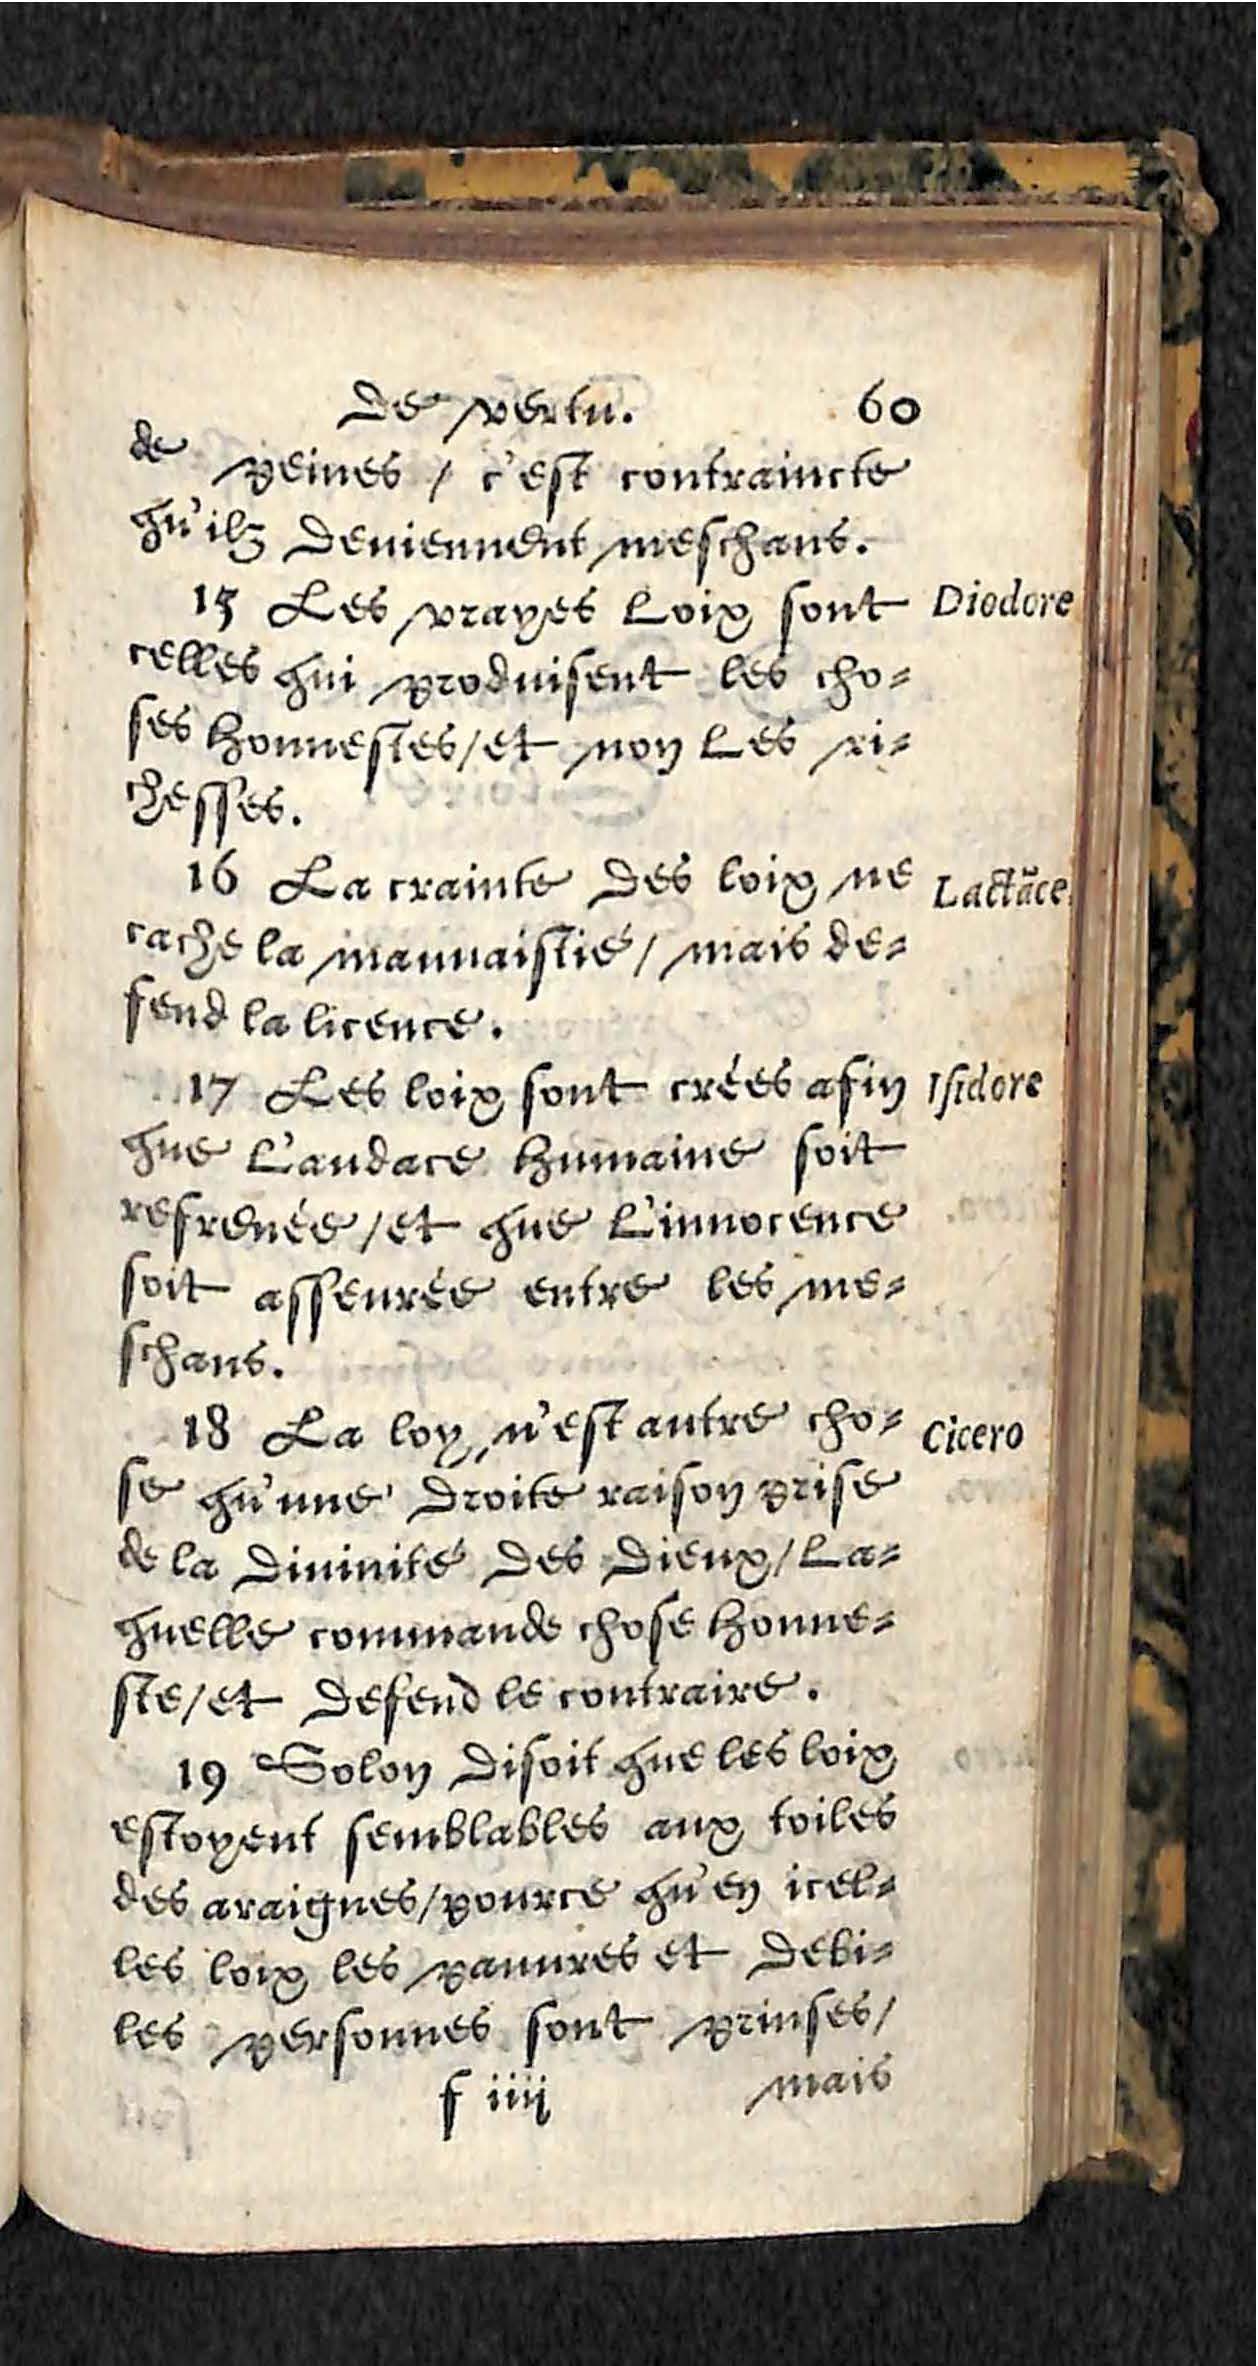 de vertu. 60
de peines / c'est contraincte
qu'ilz deuiennent meschans.
15 Les vrayes loix sont Diodore
celles qui produisent les cho=
ses honnestes / et non les ri=
chesses.
16 La crainte des loix ne Lactãce.
cache la mauuaistié / mais de=
fend la licence.
17 Les loix sont crées afin Isidore
que l'audace humaine soit
refrenée / et que l'innocence
soit asseurée entre les me=
schans.
18 La loy n'est autre cho= Cicero
se qu'une droite raison prise
de la diuinité des dieux / la=
quelle commande chose honne=
ste / et defend le contraire.
19 Solon disoit que les loix
estoyent semblables aux toiles
des araignes / pource qu'en icel=
les loix les pauures et debi=
les personnes sont prinses /
f iiij mais